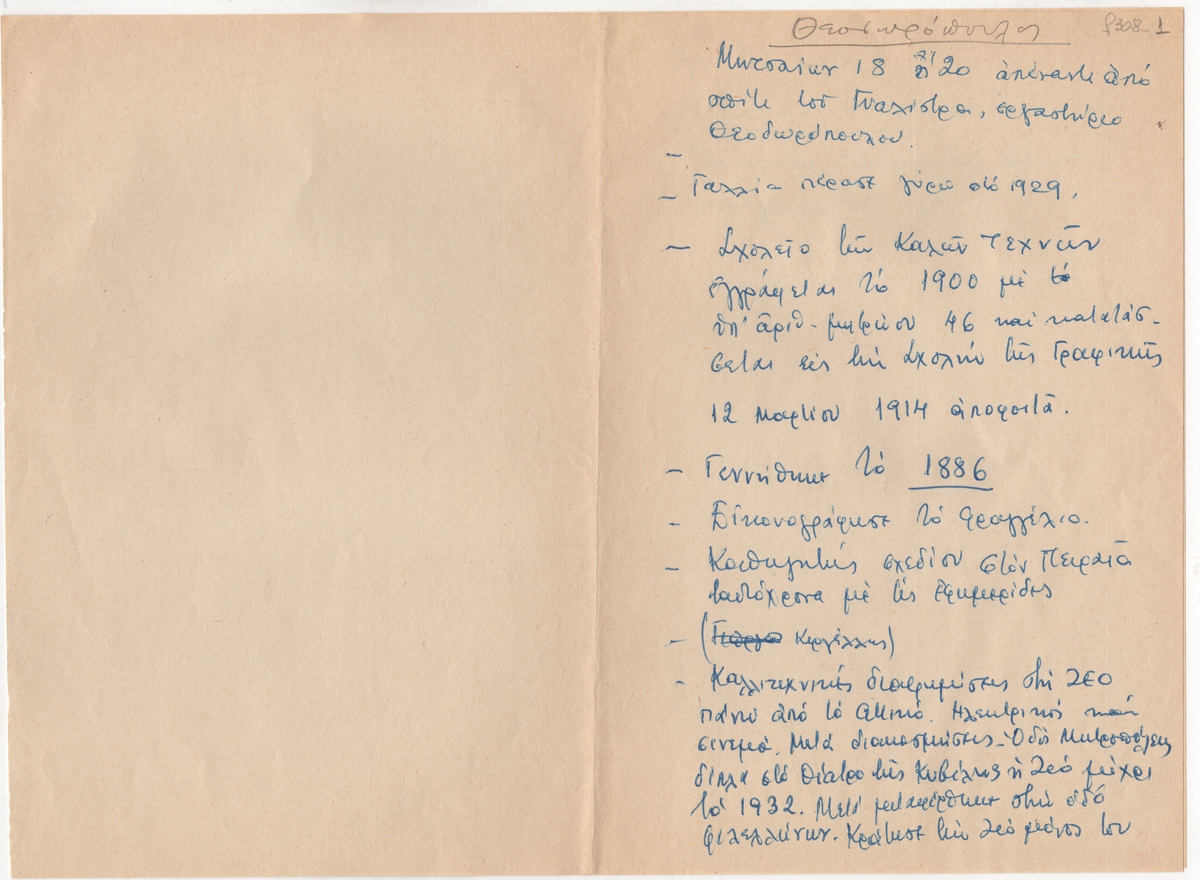 Θεοδωρόπουλος
9308 1
Μητσαίων 18 ἢ 20 ἀπέναντι ἀπό
σπίτι τοῦ Γυαλίστρα, ἐργαστήριο
Θεοδωρόπουλου.
–
– Γαλλία πέρασε γύρω στό 1929.
– Σχολεῖο τῶν Καλῶν Τεχνῶν
ἐγγράφεται τό 1900 μέ τό
ὑπ' ἀριθ. μητρώου 46 καί κατατάσ-
σεται εἰς τήν Σχολήν τῆς Γραφικῆς
12 Μαρτίου 1914 ἀποφοιτᾶ.
– Γεννήθηκε τό 1886
– Εἰκονογράφησε τό Φραγγέλιο.
– Καθηγητής σχεδίου στόν Πειραιᾶ
ταυτόχρονα μέ τίς ἐφημερίδες
– (Γιῶργο Κεργέλλης)
– Καλλιτεχνικές διαφημίσεις στή ΓΕΟ
πάνω ἀπό τό Ἀττικό. Ἠλεκτρικός καί
σινεμά. Μετά διακοσμήσεις. Ὁδό Μητροπόλεως
δίπλα στό θέατρο τῆς Κυβέλης ἡ Γεό μέχρι
τό 1932. Μετά μεταφέρθηκε στήν ὁδό
Φιλελλήνων. Κράτησε τήν Γεό μόνος του